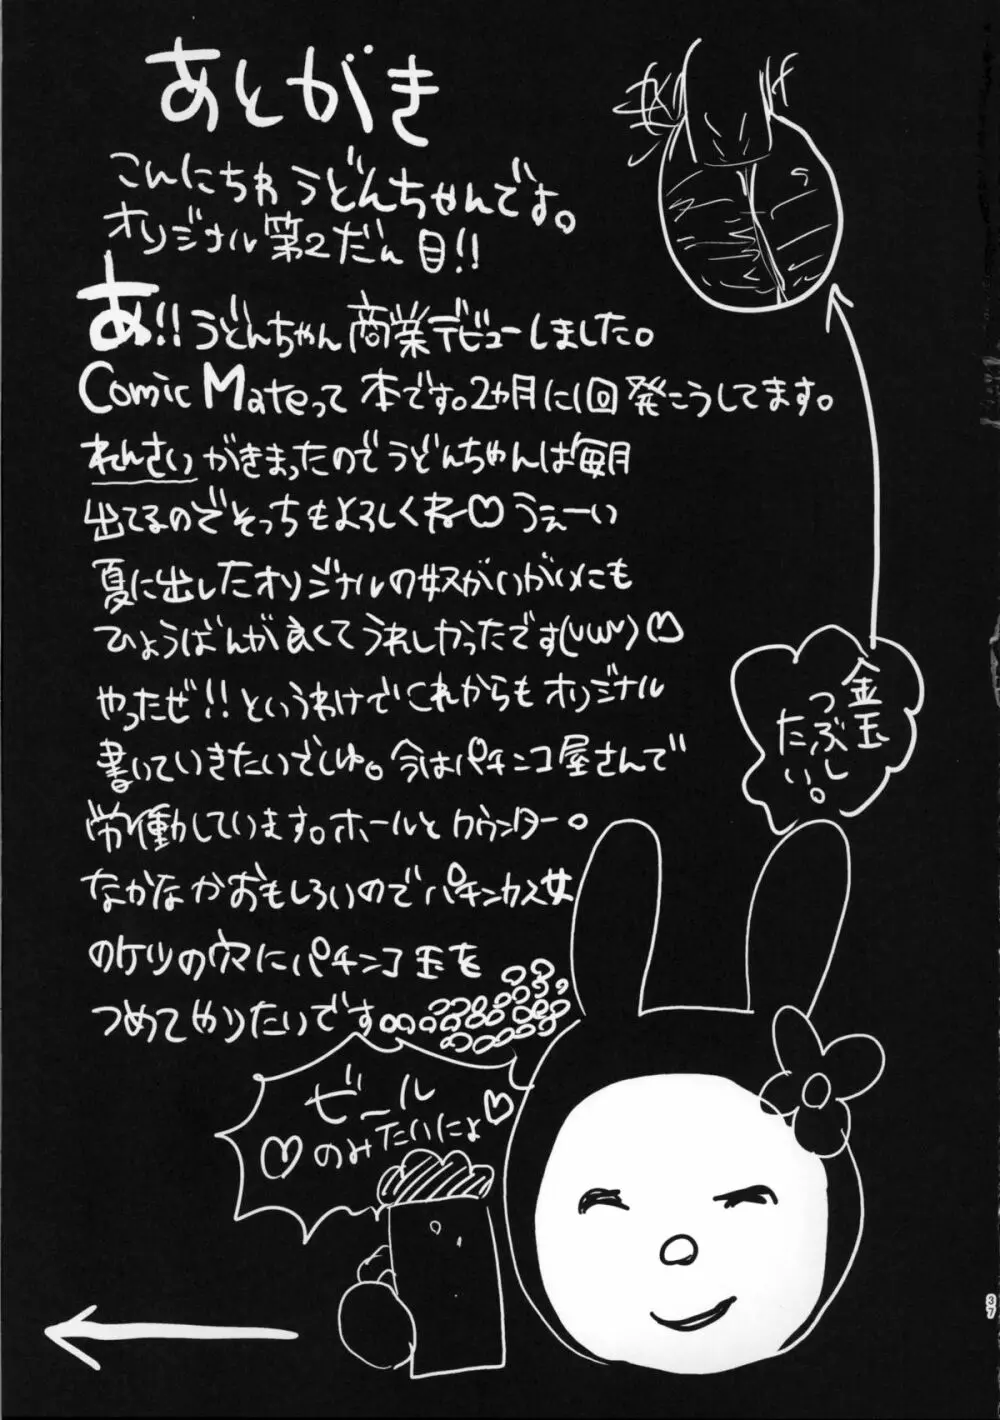 あとがき
こんにちわうどんちゃんです。
オリジナル第2だん目!!
あ!!うどんちゃん商業デビューしました。
Comic Mateって本です。2ヵ月に1回発こうしてます。
れんさいがきまったのでうどんちゃんは毎月
出てるのでそっちもよろしくね♡うぇーい
夏に出したオリジナルの奴がいがいにも
ひょうばんが良くてうれしかったです(UωU)♡
やったぜ!!というわけでこれからもオリジナル
書いていきたいでしゅ。今はパチンコ屋さんで
労働しています。ホールとカウンター。
なかなかおもしろいのでパチンカス女
のケツの穴にパチンコ玉を
つめてやりたいです。
金玉
つぶし
たい。
ビール
♡のみたいにょ♡
37